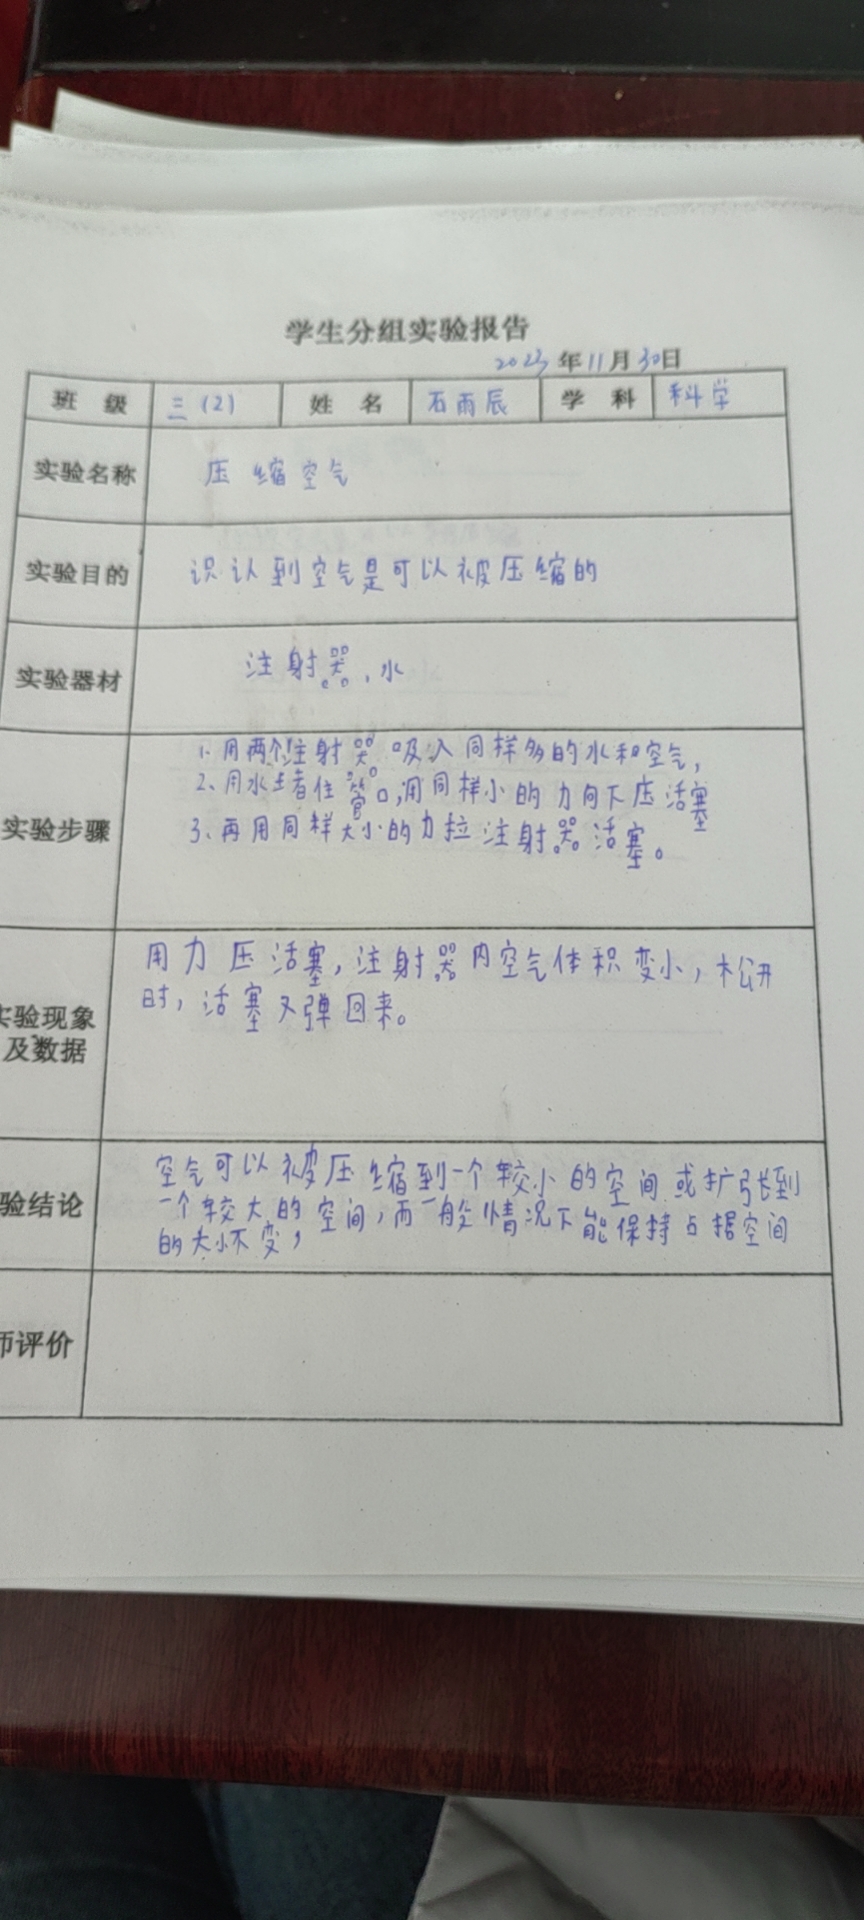 学生分组实验报告
2023年11月30日
班 级 三(2) 姓 名 石雨辰 学 科 科学
实验名称 压缩空气
实验目的 识认到空气是可以被压缩的
实验器材 注射器,水
实验步骤
1、用两个注射器吸入同样多的水和空气,
2、用水堵住管口,用同样小的力向下压活塞
3、再用同样大小的力拉注射器活塞。
实验现象
及数据
用力压活塞,注射器内空气体积变小,松开
时,活塞又弹回来。
验结论
空气可以被压缩到一个较小的空间或扩张到
一个较大的空间,而一般情况下能保持占据空间
的大小不变,
师评价